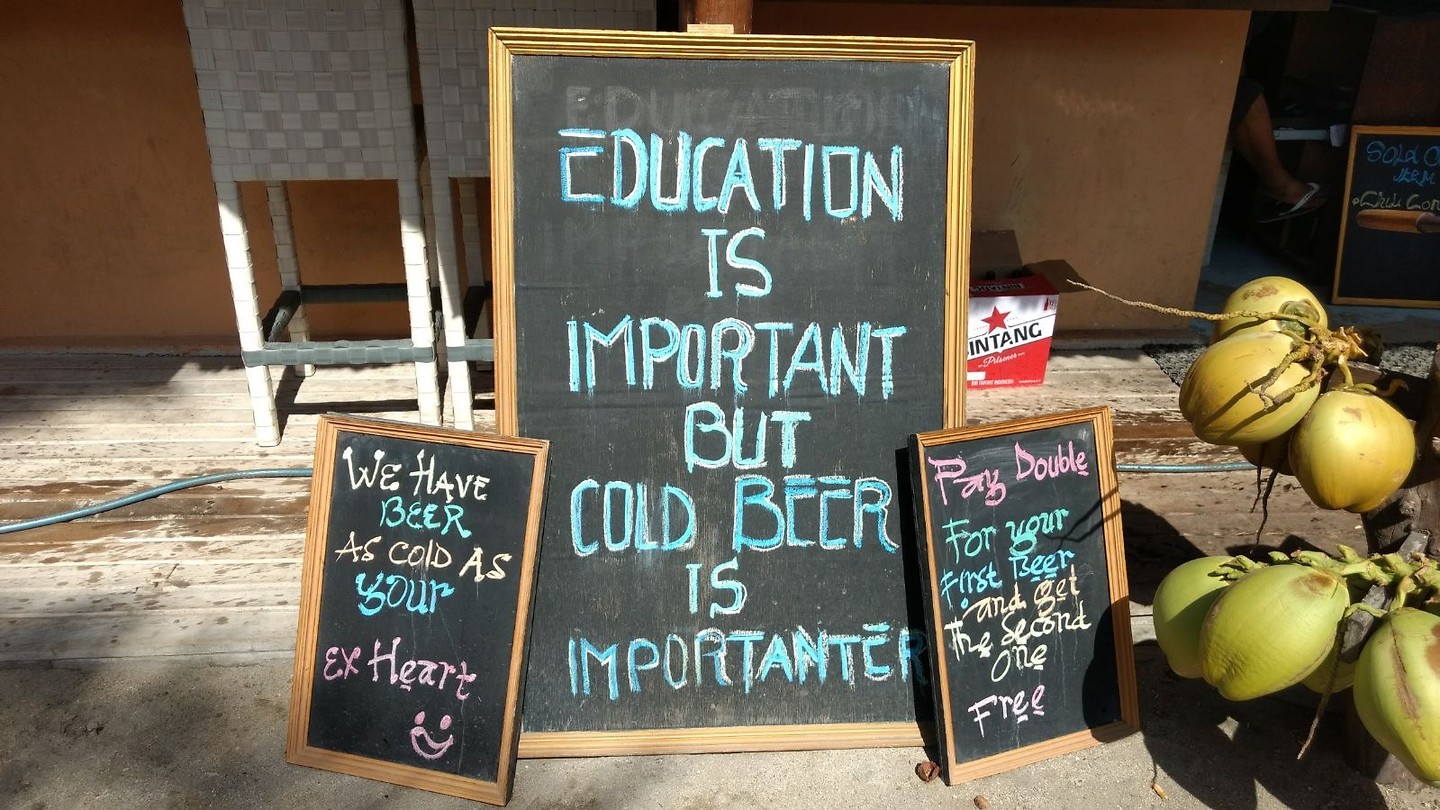 EDUCATION
IS
IMPORTANT
BUT
COLD BEER
IS
IMPORTANTER
WE HAVE
BEER
AS COLD AS
your
Ex Heart
Pay Double
For your
First Beer
and get
The Second
one
Free
INTANG
Pilsener
Sold O